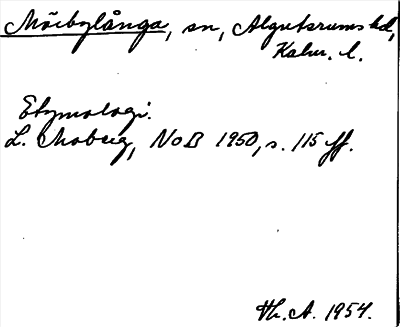 Mörbylånga, sn, Algutsrums hd,
Kalm. l.
Etymologi.
L. Moberg, NoB 1950, s. 115 ff.
Th. A. 1954.